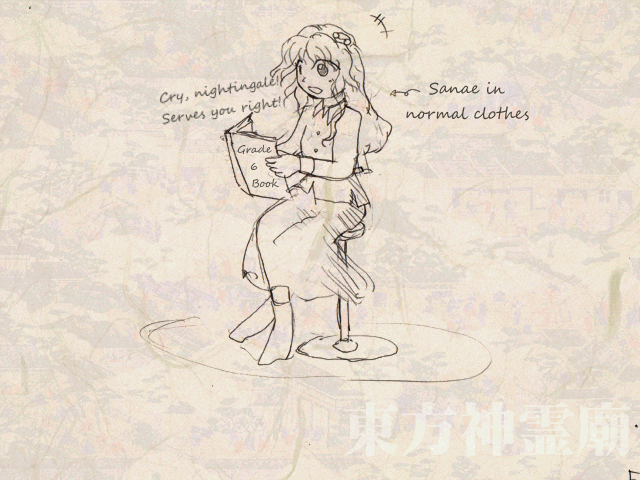 Cry, nightingale!
Serves you right!
Sanae in
normal clothes
Grade
6
Book
東方神霊廟